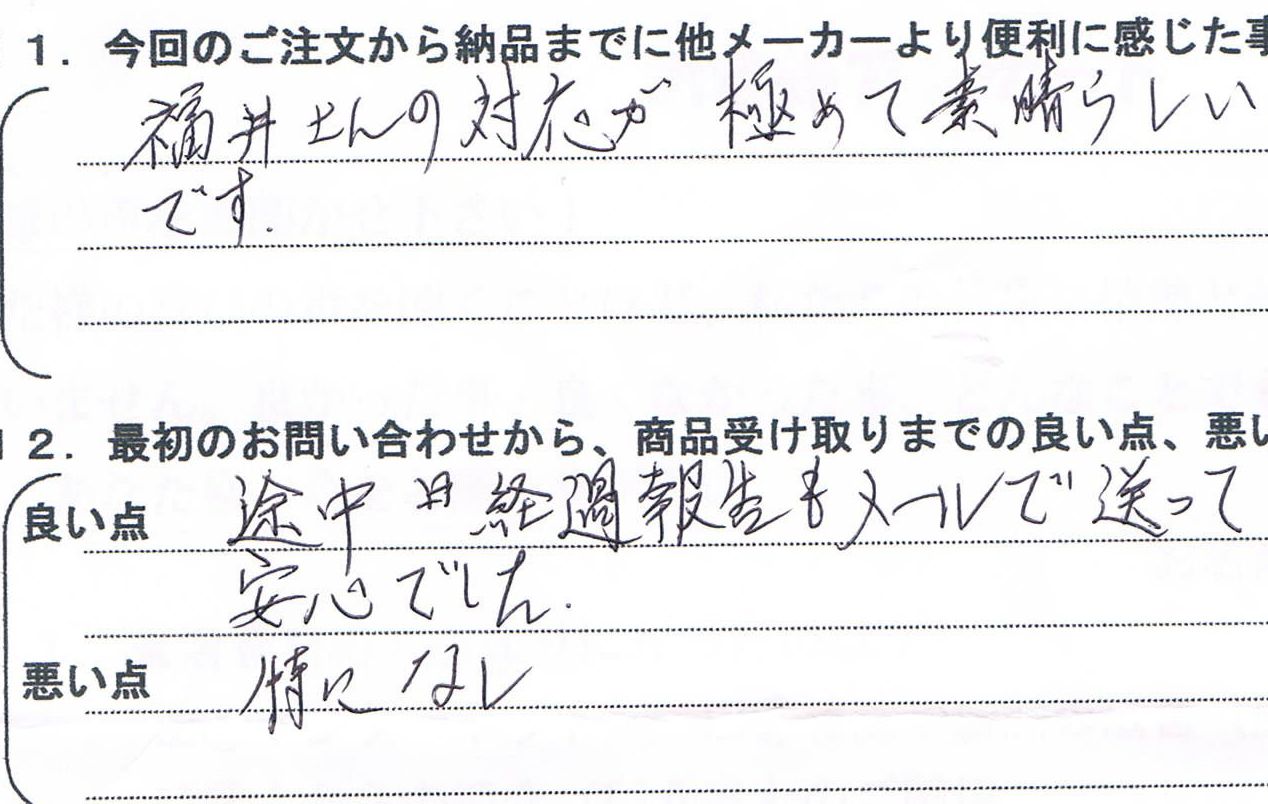 1．今回のご注文から納品までに他メーカーより便利に感じた事
福井さんの対応が極めて素晴らしい
です.
2．最初のお問い合わせから、商品受け取りまでの良い点、悪い
良い点 途中日経過報告もメールで送って
安心でした.
悪い点 特になし